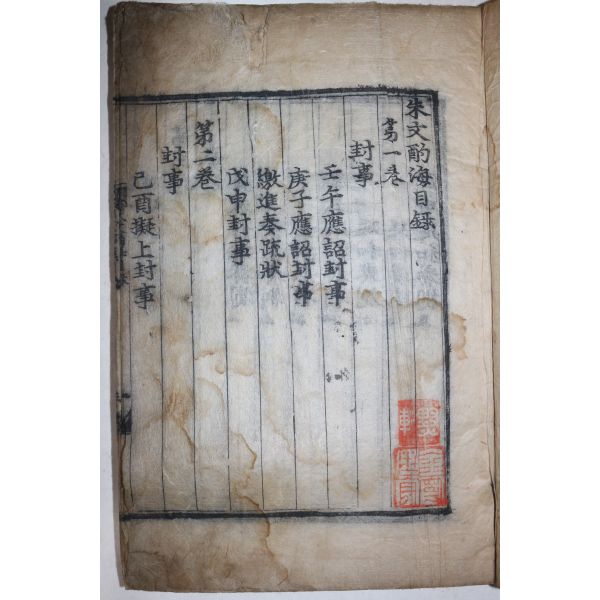 朱文酌海目録
第一卷
封事
壬午應詔封事
庚子應詔封事
繳進奏疏狀
戊申封事
第二卷
封事
己酉擬上封事